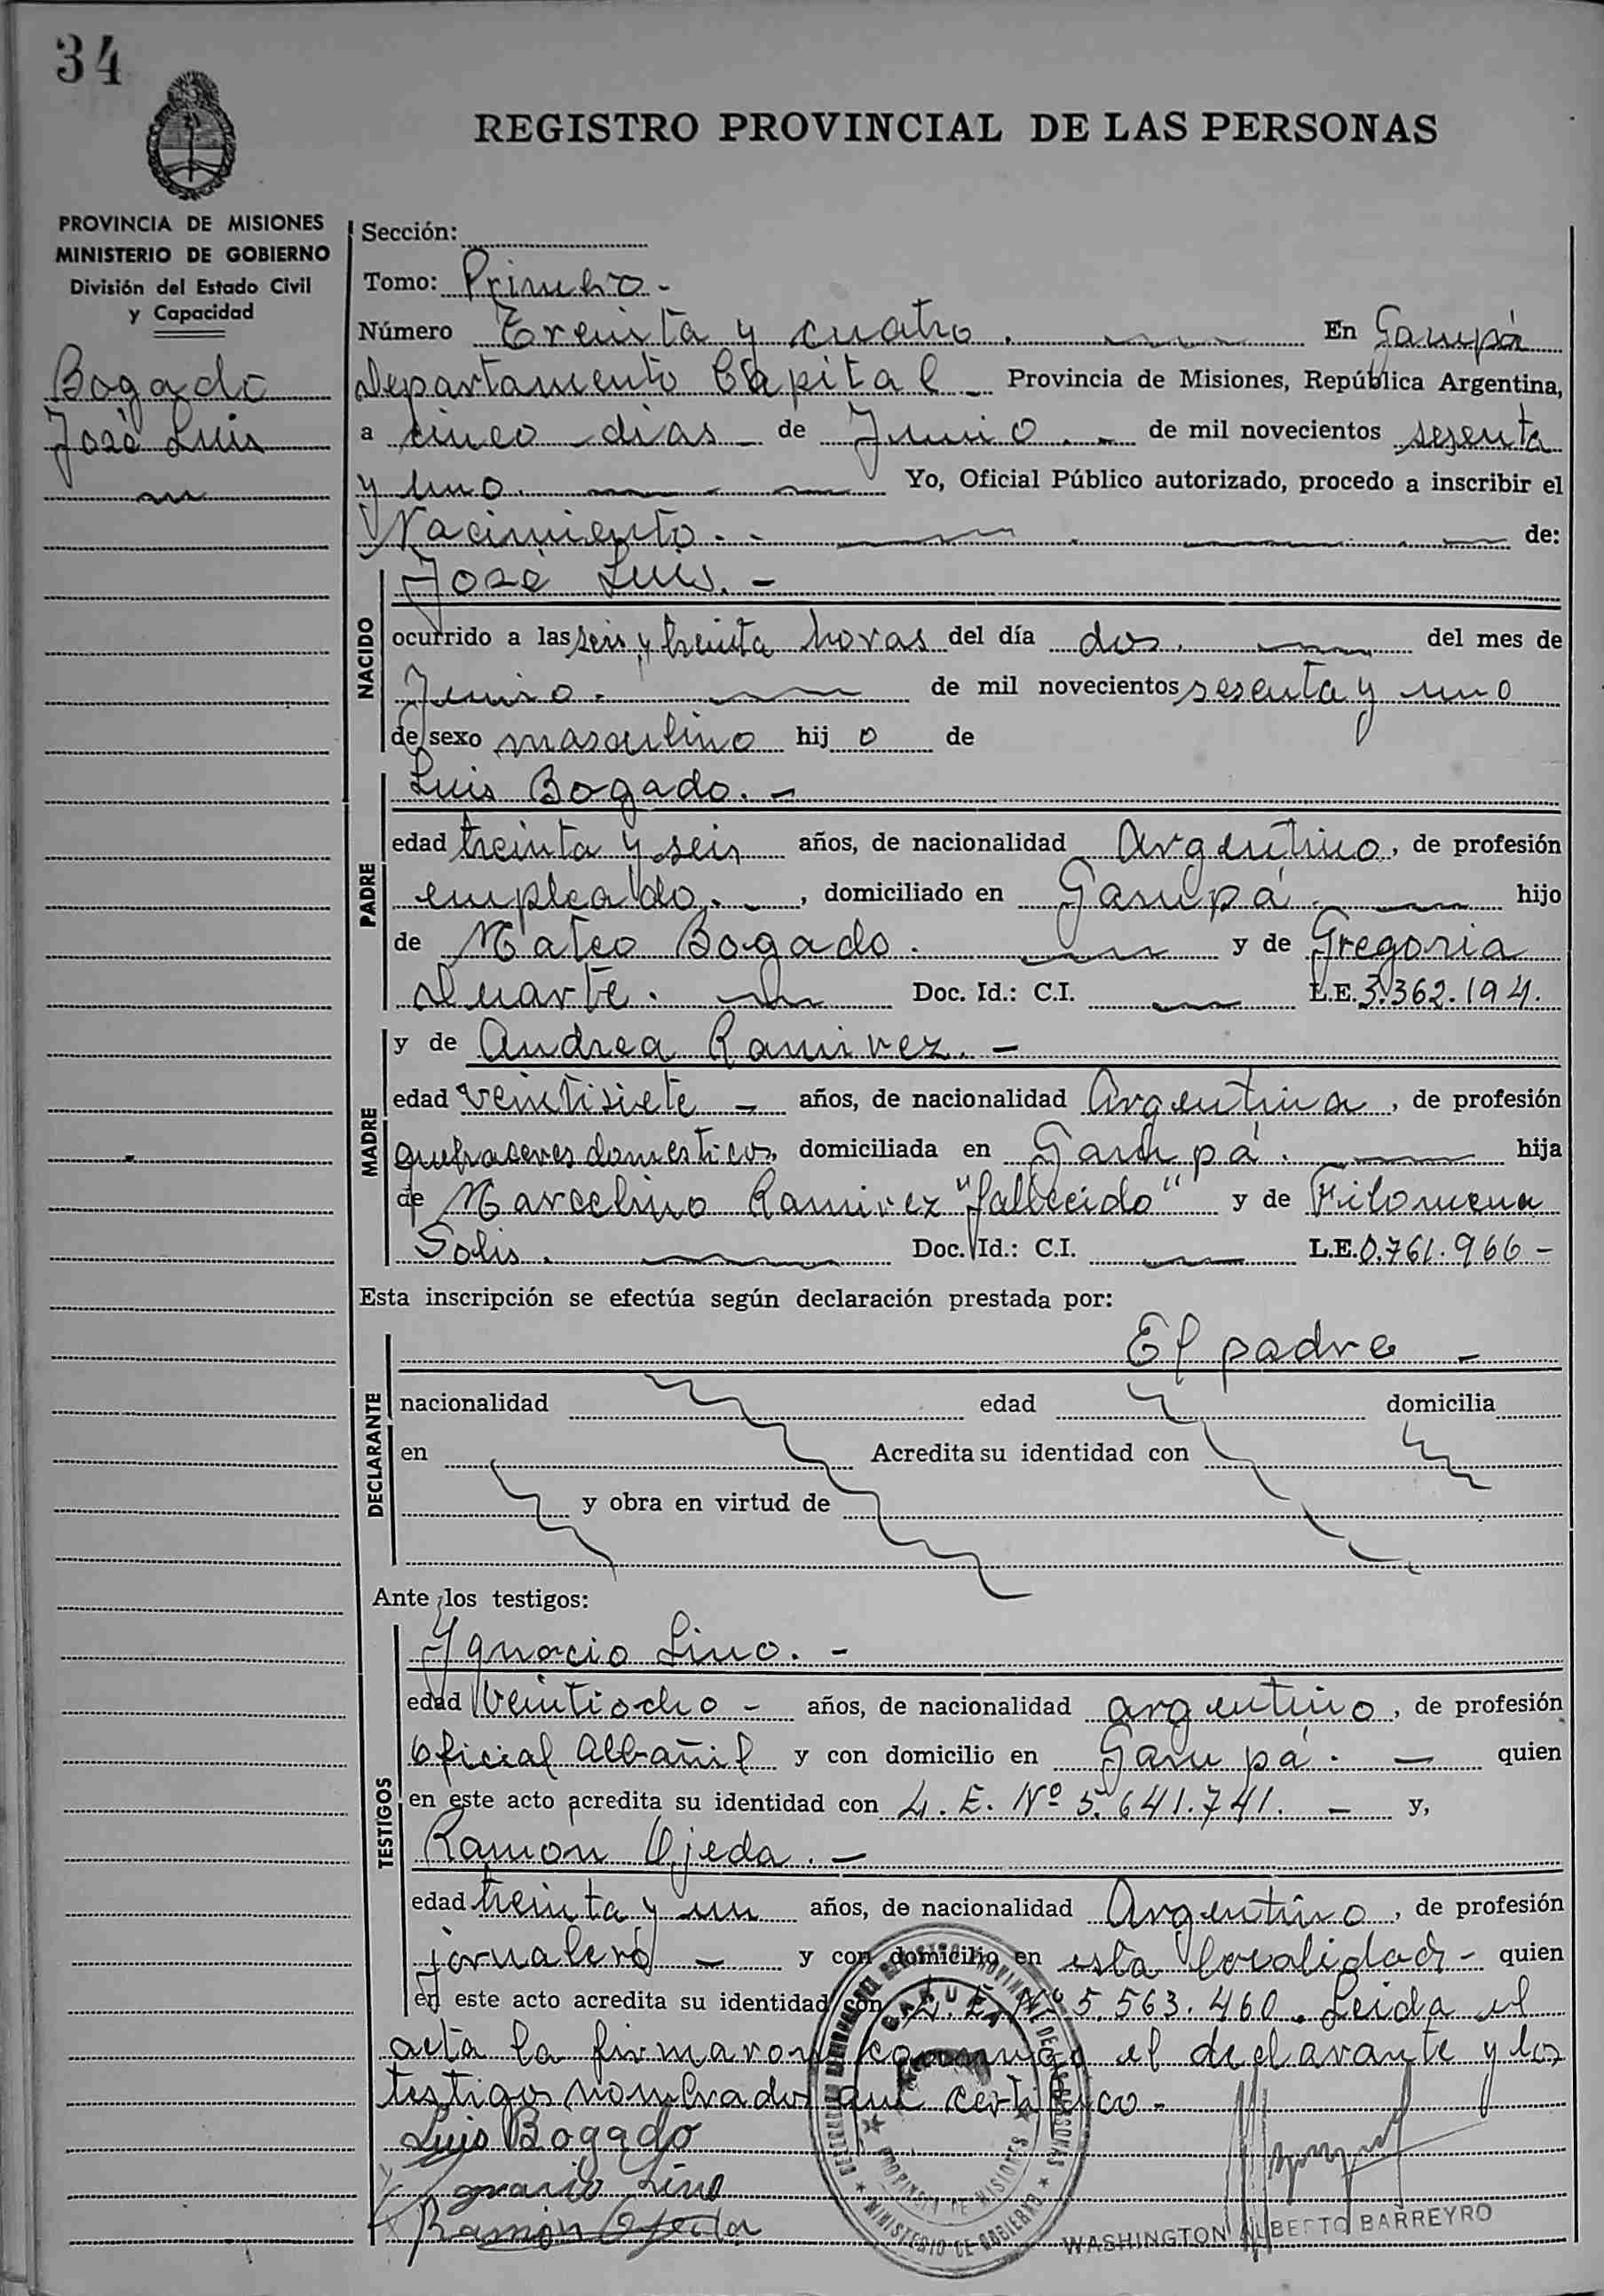 34
REGISTRO PROVINCIAL DE LAS PERSONAS
PROVINCIA DE MISIONES
MINISTERIO DE GOBIERNO
División del Estado Civil
y Capacidad
Bogado
José Luis
Sección:
Tomo: Primero -
Número Treinta y cuatro. En Garupá
Departamento Capital - Provincia de Misiones, República Argentina,
a cinco dias - de Junio . - de mil novecientos sesenta
y uno. Yo, Oficial Público autorizado, procedo a inscribir el
Nacimiento. - de:
NACIDO
José Luis. -
ocurrido a las seis y treinta horas del día dos. del mes de
Junio. de mil novecientos sesenta y uno
de sexo masculino hij o de
PADRE
Luis Bogado. -
edad treinta y seis años, de nacionalidad Argentino, de profesión
empleado. -, domiciliado en Garupá. hijo
de Mateo Bogado. y de Gregoria
Duarte. Doc. Id.: C.I. L.E. 3.362.194.
MADRE
y de Andrea Ramirez. -
edad veintisiete - años, de nacionalidad Argentina, de profesión
quehaceres domesticos, domiciliada en Garupá. hija
de Marcelino Ramirez "fallecido" y de Filomena
Solis. Doc. Id.: C.I. L.E. 0.761.966 -
Esta inscripción se efectúa según declaración prestada por:
DECLARANTE
El padre -
nacionalidad edad domicilia
en Acredita su identidad con
y obra en virtud de
Ante los testigos:
TESTIGOS
Ygnacio Lino. -
edad Veintiocho - años, de nacionalidad argentino, de profesión
Oficial Albañil y con domicilio en Garupá. - quien
en este acto acredita su identidad con L. E. Nº 5.641.741. - y,
Ramon Ojeda. -
edad treinta y un años, de nacionalidad Argentino, de profesión
jornalero - y con domicilio en esta localidad - quien
en este acto acredita su identidad con L. E. Nº 5.563.460. Leida el
acta la firmaron conmigo el declarante y los
testigos nombrados que certifico -
Luis Bogado
Ygnacio Lino
Ramón Ojeda
GARUPA
PROVINCIA DE MISIONES
MINISTERIO DE GOBIERNO
WASHINGTON ALBERTO BARREYRO